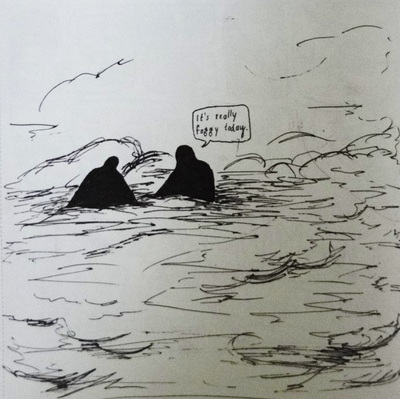 It's really
foggy today.